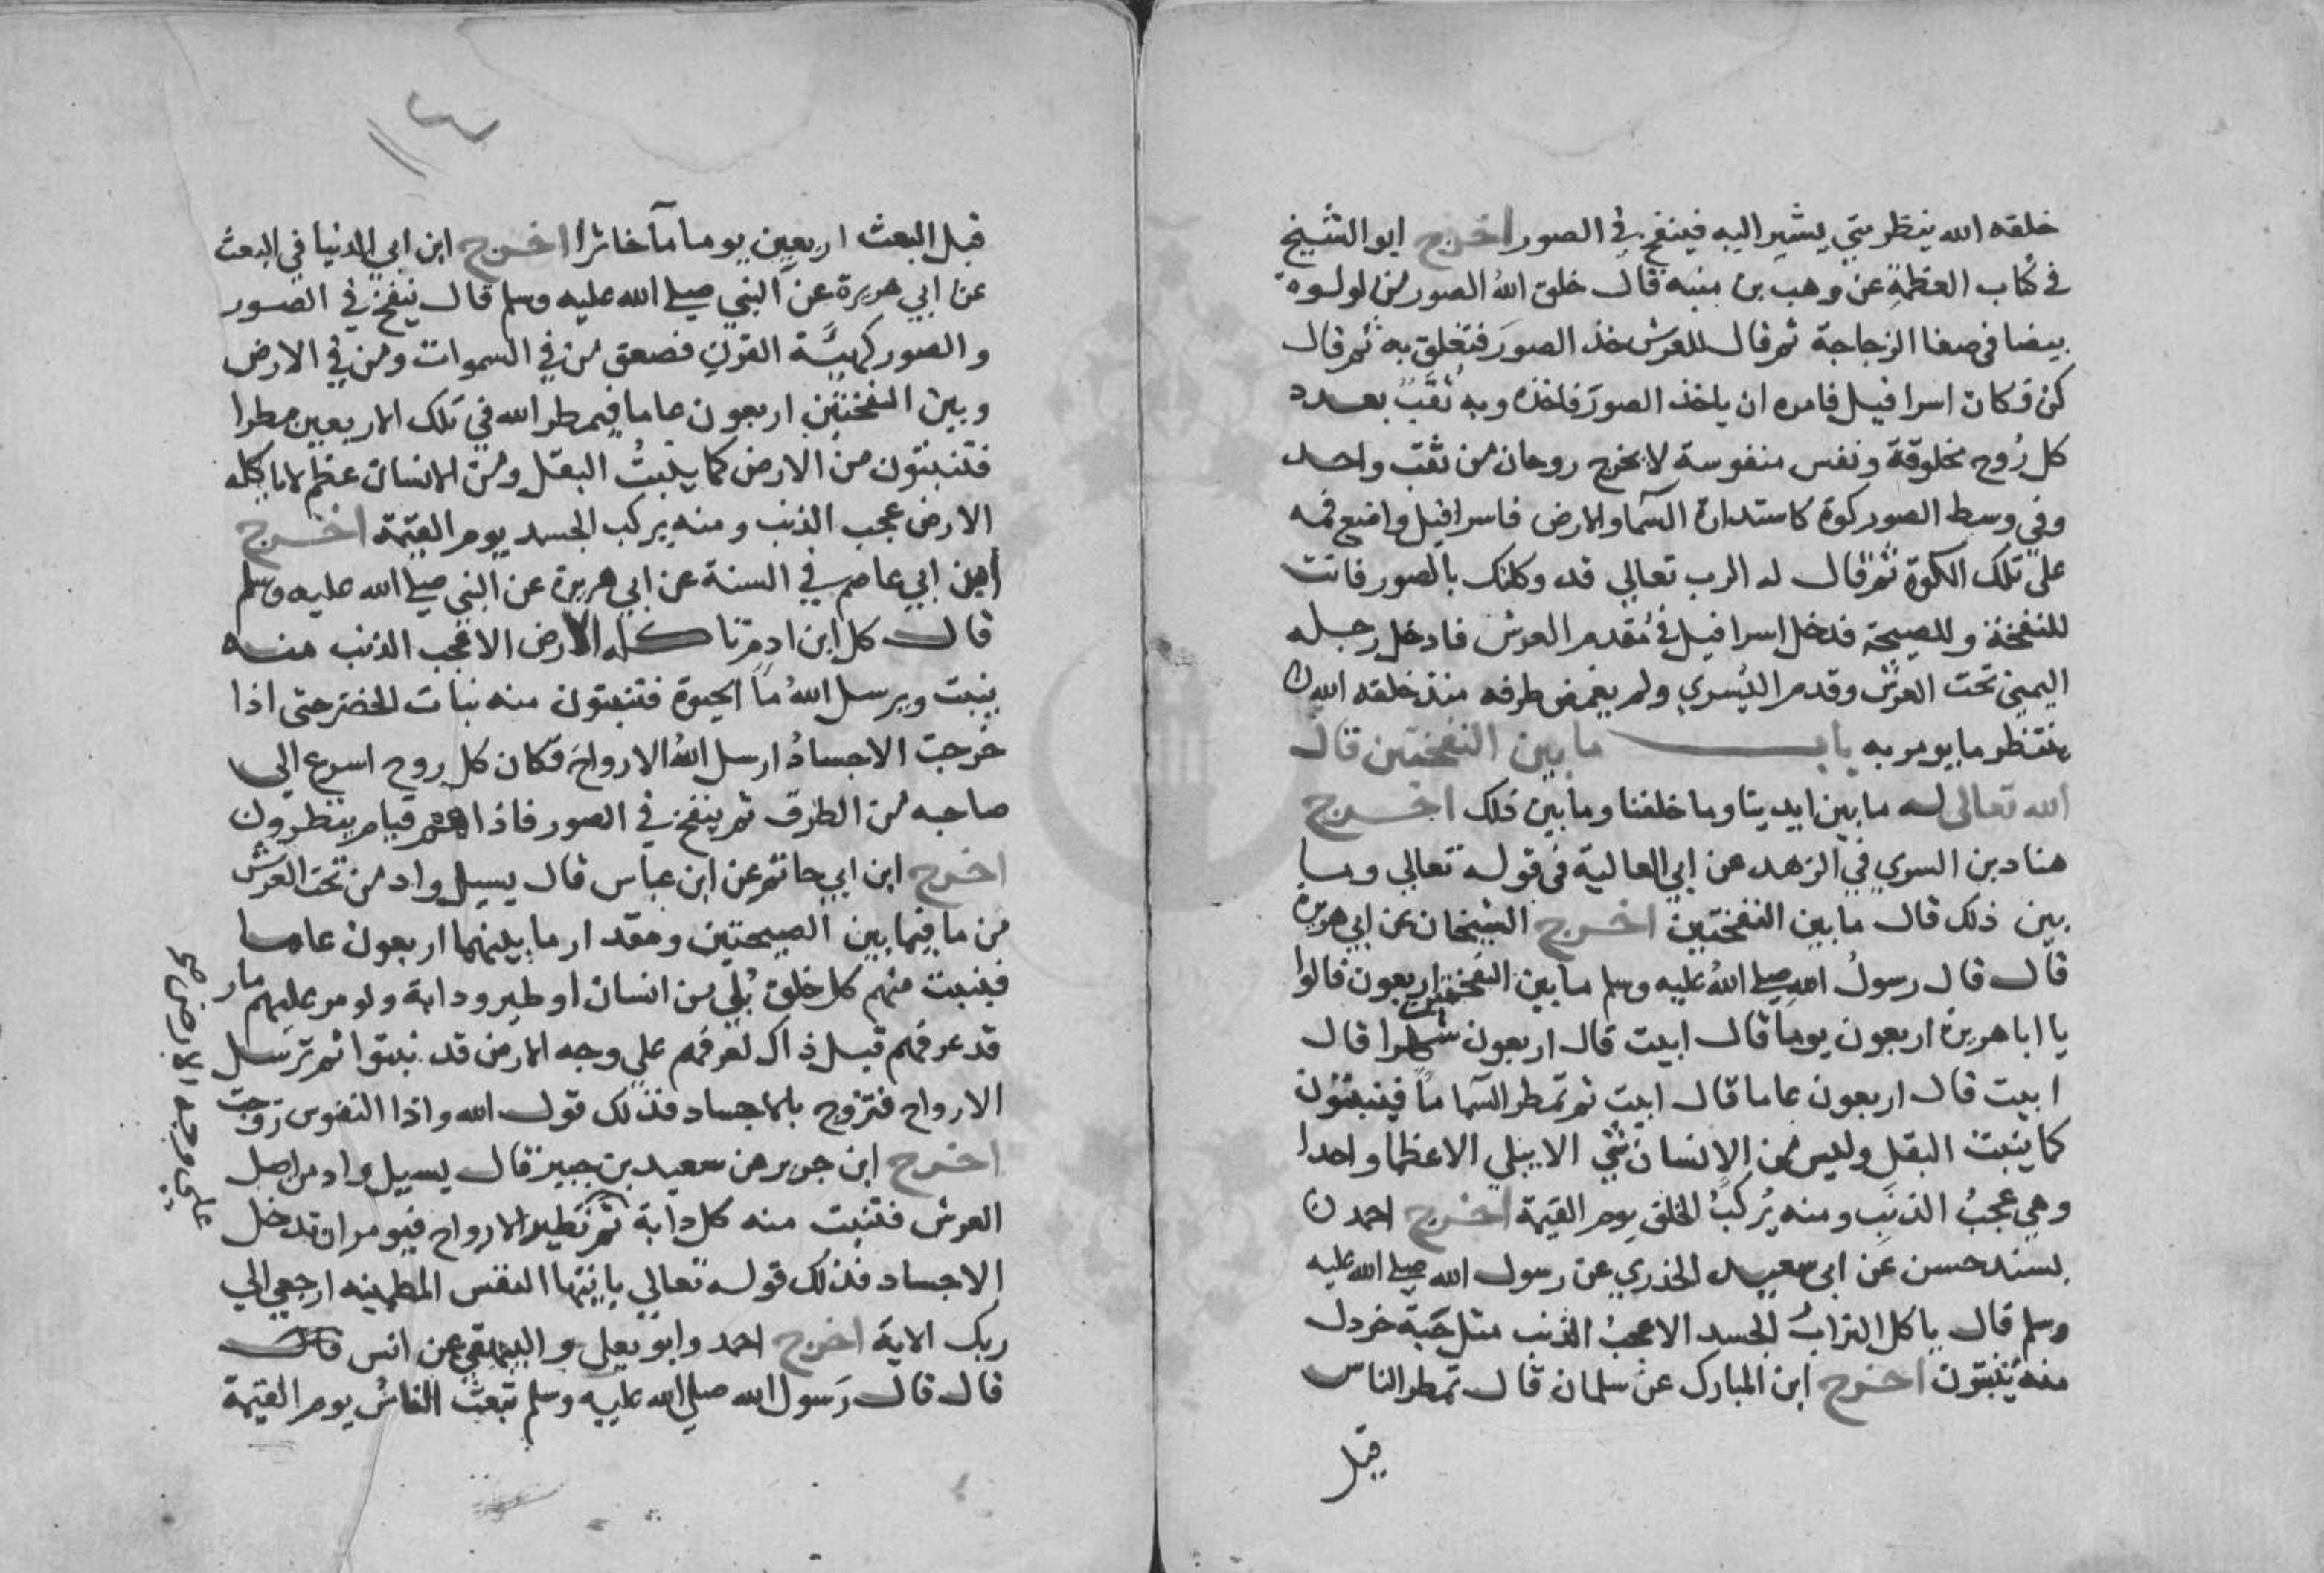 خلقه الله ينظر متي يشير اليه فينفخ في الصور اخرج ابو الشيخ
في كتاب العظمة عن وهب بن منبه قال خلق الله الصور من لولوة
بيضا في صفا الزجاجة ثم قال للعرش خذ الصور فتعلق به ثم قال
كن فكان اسرافيل فامره ان ياخذ الصور فاخذه وبه ثقب بعدد
كل روح مخلوقة ونفس منفوسة لا يخرج روحان من ثقب واحد
وفي وسط الصور كوة كاستدارة السما والارض فاسرافيل واضع فمه
على تلك الكوة ثم قال له الرب تعالي قد وكلتك بالصور فانت
للنفخة وللصيحة فدخل اسرافيل في مقدم العرش فادخل رجله
اليمني تحت العرش وقدم اليسري ولم يغمض طرفه منذ خلقه الله
ينتظر ما يومر به باب ما بين النفختين قال
الله تعالى له ما بين ايدينا وما خلفنا وما بين ذلك اخرج
هناد بن السري في الزهد عن ابي العالية في قوله تعالي وما
بين ذلك قال ما بين النفختين اخرج الشيخان عن ابي هريرة
قال قال رسول الله صلي الله عليه وسلم ما بين النفختين اربعون قالوا
يا ابا هريرة اربعون يوما قال ابيت قال اربعون شهرا قال
ابيت قال اربعون عاما قال ابيت ثم تمطر السما ما فينبتون
كما ينبت البقل وليس من الانسان شي الا يبلي الا عظما واحدا
وهي عجب الذنب ومنه يركب الخلق يوم القيمة اخرج احمد
بسند حسن عن ابي سعيد الخذري عن رسول الله صلي الله عليه
وسلم قال ياكل التراب الجسد الا عجب الذنب مثل حبة خردل
منه ينبتون اخرج ابن المبارك عن سلمان قال تمطر الناس
قبل
١٢
قبل البعث اربعين يوما مآ خاثرا اخرج ابن ابي الدنيا في البعث
عن ابي هريرة عن النبي صلي الله عليه وسلم قال ينفخ في الصور
والصور كهيئة القرن فصعق من في السموات ومن في الارض
وبين النفختين اربعون عاما فيمطر الله في تلك الاربعين مطرا
فتنبتون من الارض كما ينبت البقل ومن الانسان عظم لا ياكله
الارض عجب الذنب ومنه يركب الجسد يوم القيمة اخرج
ابن ابي عاصم في السنة عن ابي هريرة عن النبي صلي الله عليه وسلم
قال كل ابن ادم تاكله الارض الا عجب الذنب منه
ينبت ويرسل الله ما الحيوة فتنبتون منه نبات الخضر حتى اذا
خرجت الاجساد ارسل الله الارواح فكان كل روح اسرع الي
صاحبه من الطرف ثم ينفخ في الصور فاذا هم قيام ينظرون
اخرج ابن ابي حاتم عن ابن عباس قال يسيل واد من تحت العرش
من ما فيما بين الصيحتين ومقدار ما بينهما اربعون عاما
فينبت منهم كل خلق بلي من انسان او طير ودابة ولو مر عليهم مار
قد عرفهم قبل ذاك لعرفهم علي وجه الارض قد نبتوا ثم ترسل
الارواح فتزوج بالاجساد فذلك قول الله واذا النفوس زوجت
اخرج ابن جرير عن سعيد بن جبير قال يسيل واد من اصل
العرش فتنبت منه كل دابة ثم تطير الارواح فيومر ان تدخل
الاجساد فذلك قوله تعالي يا ايتها النفس المطمينه ارجعي الي
ربك الاية اخرج احمد وابو يعلي والبيهقي عن انس قال
قال قال رسول الله صلي الله عليه وسلم تبعث الناس يوم القيمة
علي وجه الارض